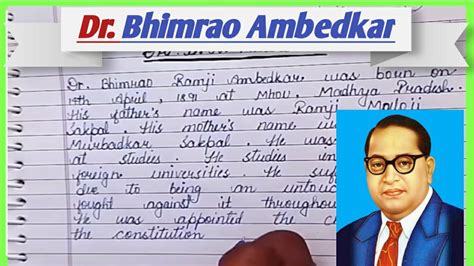 Dr. Bhimrao Ambedkar
Dr. Bhimrao Ramji Ambedkar was born on
14th April, 1891 at MHOW, Madhya Pradesh.
His father's name was Ramji Maloji
Sakpal. His mother's name
Murbadkar Sakpal. He was
at studies. He studies
foreign universities. He
due to being an
fought against it
He was appointed the
the constitution